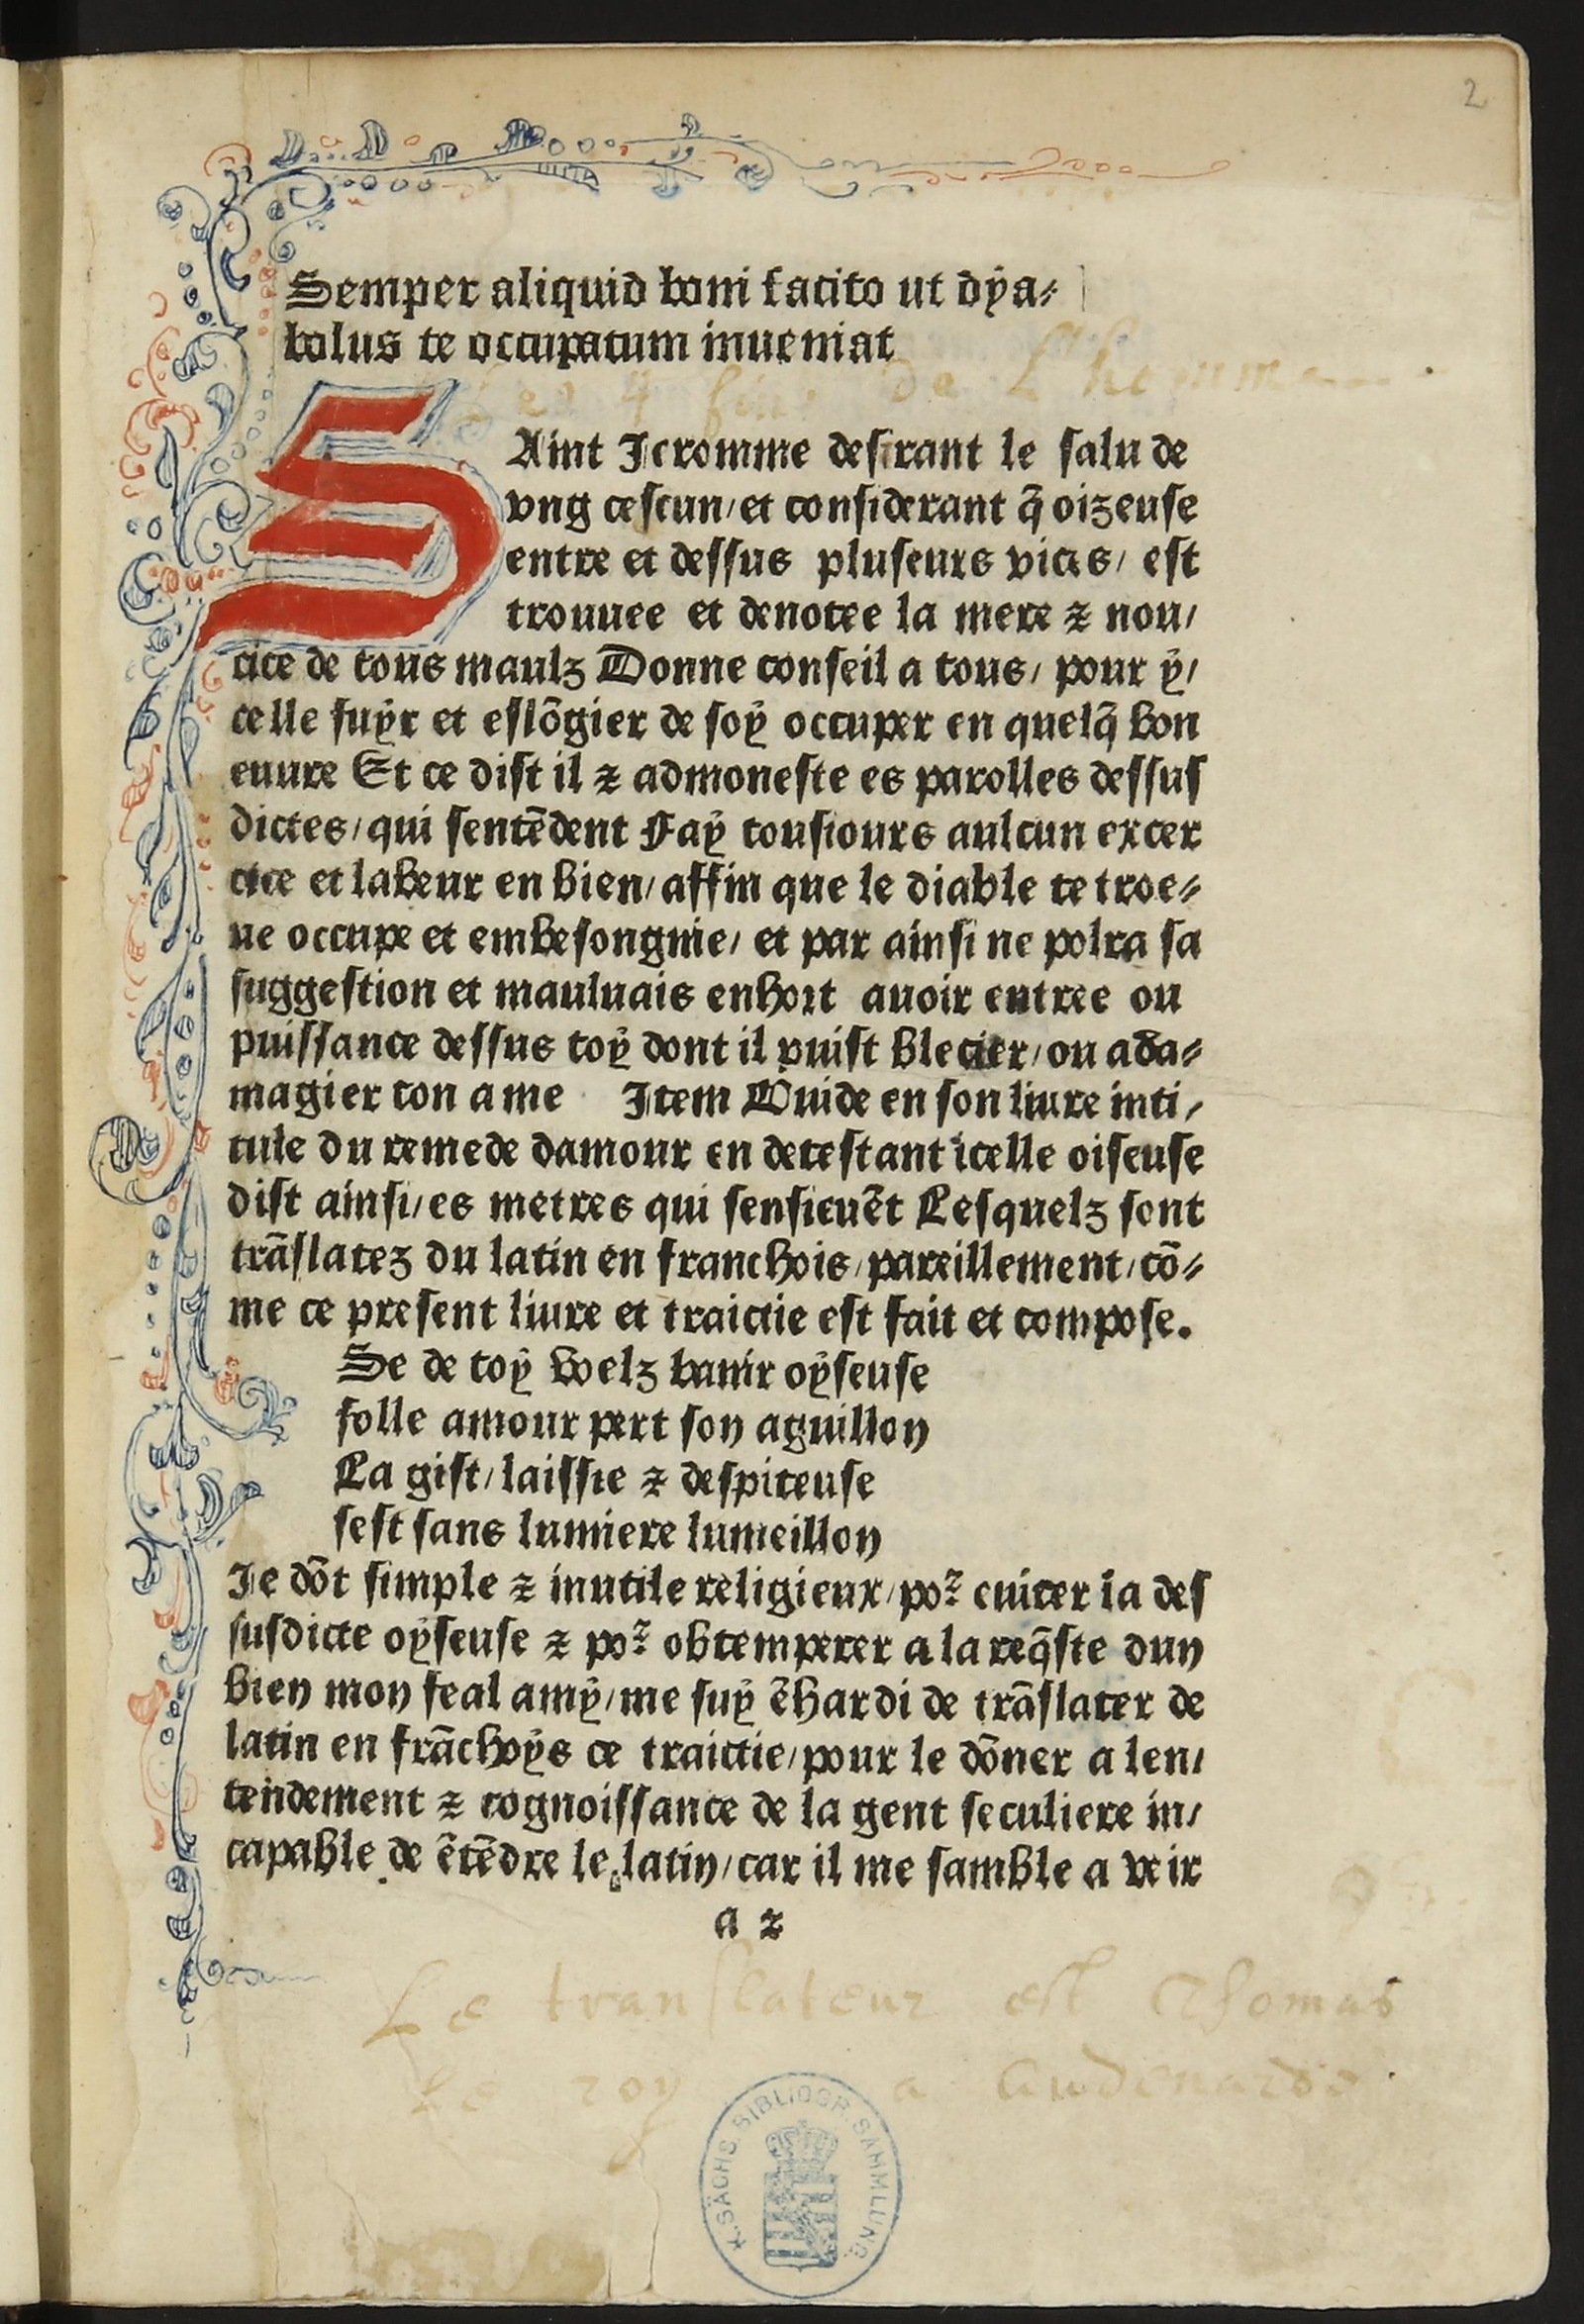 2
Semper aliquid boni facito ut dẏa⸗
bolus te occupatum inueniat
Les 4 fins de L'homme
SAint Jeromme desirant le salu de
vng cescun/et considerant q̃ oizeuse
entre et dessus pluseurs vices/ est
trouuee et denotee la mere ⁊ nou/
rice de tous maulz Donne conseil a tous/ pour ẏ/
celle fuẏr et eslõgier de soẏ occuper en quelq̃ bon
euure Et ce dist il ⁊ admoneste es parolles dessus
dictes/qui sentẽdent Faẏ tousiours aulcun excer
cice et labeur en bien/affin que le diable te troe⸗
ue occupe et embesongnie/ et par ainsi ne polra sa
suggestion et mauluais enhort auoir entree ou
puissance dessus toẏ dont il puist blecier/ou ada⸗
magier ton ame Item Ouide en son liure inti/
tule du remede damour en detestant icelle oiseuse
dist ainsi/es metres qui sensieuẽt Lesquelz sont
trãslatez du latin en franchois/pareillement/cõ⸗
me ce present liure et traictie est fait et compose.
Se de toẏ welz banir oẏseuse
folle amour pert son aguillon
La gist/laissie ⁊ despiteuse
sest sans lumiere lumeillon
Je dõt simple ⁊ inutile religieux/poꝛ euiter la des
susdicte oẏseuse ⁊ poꝛ obtemperer a la req̃ste dun
bien mon feal amẏ/me suẏ ẽhardi de trãslater de
latin en frãchoẏs ce traictie/pour le dõner a len/
tendement ⁊ cognoissance de la gent seculiere in/
capable de ẽtẽdre le latin/car il me samble a veir
a 2
Le translateur est Thomas
Le roy a Audenarde.
K. SÄCHS. BIBLIOGR. SAMMLUNG